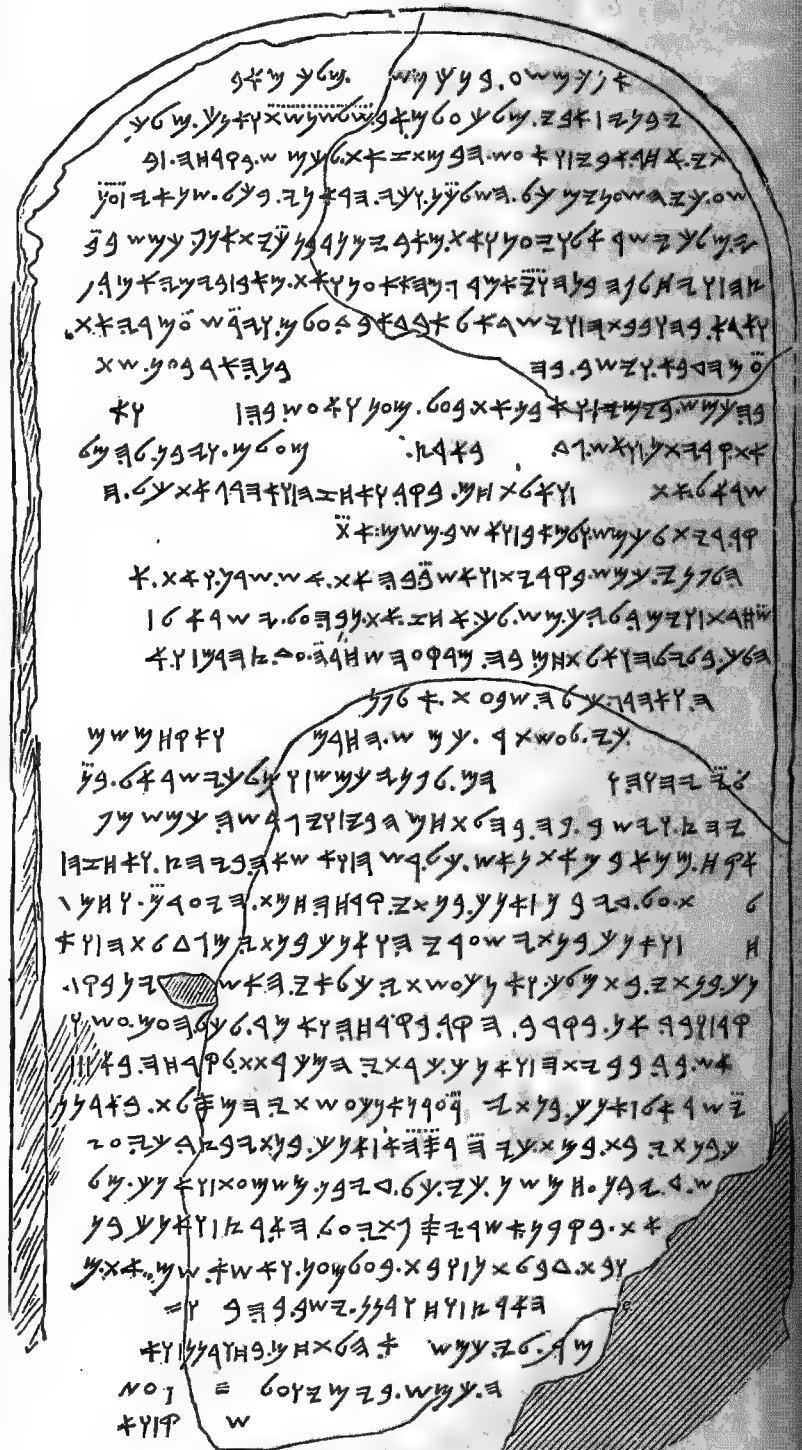 𐤀𐤍𐤊 𐤌𐤔𐤏.𐤁𐤍 𐤊𐤌𐤔 .𐤌𐤋𐤊 𐤌𐤀𐤁
𐤉𐤁𐤍𐤉|𐤀𐤁𐤉.𐤌𐤋𐤊 𐤏𐤋 𐤌𐤀𐤁.𐤔𐤋𐤔𐤌𐤔𐤕 𐤅𐤀𐤍𐤊.𐤌𐤋𐤊
𐤕𐤉.𐤀𐤇𐤓 𐤀𐤁𐤉|𐤅𐤀𐤏𐤔.𐤄𐤁𐤌𐤕 𐤆𐤀𐤕.𐤋𐤊𐤌𐤔.𐤁𐤒𐤓𐤇𐤄.|𐤁
𐤔𐤏.𐤊𐤉.𐤄𐤔𐤏𐤍𐤉 𐤌𐤊𐤋.𐤄𐤔𐤋𐤊𐤍.𐤅𐤊𐤉.𐤄𐤓𐤀𐤍𐤉.𐤁𐤊𐤋.𐤔𐤍𐤀𐤉|𐤏
𐤉.𐤌𐤋𐤊 𐤉𐤔𐤓𐤀𐤋 𐤅𐤉𐤏𐤍𐤅 𐤀𐤕.𐤌𐤀𐤁 𐤉𐤌𐤍 𐤓𐤁𐤍 𐤊𐤉 𐤕𐤀𐤍𐤐.𐤊𐤌𐤔
𐤅𐤉𐤇𐤋𐤐𐤄 𐤁𐤍𐤄 𐤅𐤉𐤀𐤌𐤓 𐤂𐤌𐤄𐤀 𐤀𐤏𐤍𐤅 𐤀𐤕.𐤌𐤀𐤁|𐤁𐤉𐤌𐤉 𐤀𐤌𐤓
𐤅𐤀𐤓𐤀.𐤁𐤄 𐤅𐤁𐤁𐤕𐤄|𐤅𐤉𐤔𐤓𐤀𐤋 𐤀𐤁𐤃 𐤀𐤁𐤃 𐤏𐤋𐤌.𐤅𐤉𐤓𐤔 𐤏𐤌𐤓𐤉 𐤀𐤕
𐤌𐤄𐤃𐤁𐤀.𐤅𐤉𐤔𐤁.𐤁𐤄 𐤀𐤓𐤁𐤏𐤍.𐤔𐤕
𐤁𐤄 𐤊𐤌𐤔.𐤁𐤉𐤌𐤉|𐤅𐤀𐤁𐤍 𐤀𐤕 𐤁𐤏𐤋.𐤌𐤏𐤍 𐤅𐤀𐤏𐤔.𐤁𐤄| 𐤅𐤀
𐤀𐤕.𐤒𐤓𐤉𐤕𐤍|𐤅𐤀𐤔.𐤂𐤃 𐤁𐤀𐤓𐤑. 𐤌𐤏𐤋𐤌.𐤅𐤉𐤁𐤍.𐤋𐤄 𐤌𐤋
𐤔𐤓𐤀𐤋.𐤀𐤕 |𐤅𐤀𐤋𐤕𐤇𐤌.𐤁𐤒𐤓.𐤅𐤀𐤇𐤆𐤄|𐤅𐤀𐤄𐤓𐤂 𐤀𐤕 𐤊𐤋.𐤄
𐤒𐤓.𐤓𐤉𐤕 𐤋𐤊𐤌𐤔 𐤅𐤋𐤌𐤀𐤁|𐤅𐤀𐤔𐤁
𐤋𐤐𐤍𐤉.𐤊𐤌𐤔.𐤁𐤒𐤓𐤉𐤕|𐤅𐤀𐤔𐤁 𐤁𐤄.𐤀𐤕.𐤀𐤔.𐤔𐤓𐤍.𐤅𐤀𐤕.𐤀
𐤌𐤇𐤓𐤕|𐤅𐤉𐤀𐤌𐤓 𐤋𐤉.𐤊𐤌𐤔.𐤋𐤊.𐤀𐤇𐤆.𐤀𐤕.𐤍𐤁𐤄.𐤏𐤋.𐤉𐤔𐤓𐤀𐤋|
𐤄𐤋𐤊.𐤁𐤋𐤋𐤄 𐤅𐤀𐤋𐤕𐤇𐤌.𐤁𐤄.𐤌𐤁𐤒𐤏 𐤄𐤔𐤇𐤓𐤕.𐤏𐤃.𐤄𐤑𐤄𐤓𐤌|𐤅𐤀
𐤄.𐤅𐤀𐤄𐤓𐤂.𐤊𐤋 𐤄 𐤔𐤁𐤏𐤕.𐤀𐤋𐤐𐤍
𐤊𐤉.𐤋𐤏𐤔𐤕𐤓.𐤊𐤌𐤔.𐤄𐤇𐤓𐤌 𐤅𐤀𐤒𐤇𐤌𐤔𐤌
𐤋𐤉 𐤉𐤄𐤅𐤄 𐤄𐤌.𐤋𐤐𐤍𐤉 𐤊𐤌𐤔|𐤅𐤌𐤋𐤊 𐤉𐤔𐤓𐤀𐤋.𐤁𐤍
𐤉𐤄𐤑.𐤅𐤉𐤔𐤁.𐤁𐤄.𐤁𐤄𐤋𐤕𐤇𐤌𐤄 𐤁𐤉|𐤅𐤉𐤂𐤓𐤔𐤄 𐤊𐤌𐤔 𐤌𐤐
𐤀𐤒𐤇.𐤌𐤌𐤀𐤁 𐤌𐤀𐤕𐤍 𐤀𐤔.𐤊𐤋.𐤓𐤔𐤄|𐤅𐤀𐤔𐤀𐤄.𐤁𐤉𐤄𐤑.𐤅𐤀𐤇𐤆𐤄|
𐤋 𐤕.𐤏𐤋.𐤃𐤉𐤁𐤍|𐤀𐤍𐤊.𐤁𐤍𐤕𐤉.𐤒𐤓𐤇𐤄.𐤇𐤌𐤕.𐤄𐤉𐤏𐤓𐤍.𐤅𐤇𐤌
𐤇 |𐤅𐤀𐤍𐤊.𐤁𐤍𐤕𐤉 𐤔𐤏𐤓𐤉𐤄 𐤅𐤀𐤍𐤊.𐤁𐤍𐤕𐤉.𐤌𐤂𐤃𐤋𐤕𐤄|𐤅𐤀
𐤍𐤊.𐤁𐤍𐤕𐤉.𐤁𐤕 𐤌𐤋𐤊.𐤅𐤀𐤍𐤊 𐤏𐤔𐤕𐤉.𐤊𐤋𐤀𐤉.𐤄𐤀𐤔
𐤒𐤓𐤁|𐤅𐤁𐤓 𐤀𐤍.𐤁𐤒𐤓𐤁.𐤄𐤒𐤓 𐤁𐤒𐤓𐤇𐤄 𐤅𐤀𐤌𐤓.𐤋𐤊𐤋 𐤄𐤏𐤌.𐤏𐤔𐤅
𐤀𐤔.𐤁𐤓.𐤁𐤁𐤉𐤕𐤄|𐤅𐤀𐤍𐤊.𐤊𐤓𐤕𐤉.𐤄𐤌𐤊𐤓𐤕𐤕 𐤋𐤒𐤓𐤇𐤄.𐤁𐤀𐤎
𐤉𐤔𐤓𐤀𐤋|𐤀𐤍𐤊.𐤁𐤍𐤕𐤉 𐤏𐤓𐤏𐤓 𐤅𐤀𐤍𐤊 𐤏𐤔𐤕𐤉.𐤄𐤌𐤎𐤋𐤕.𐤁𐤀𐤓𐤍𐤍
𐤍𐤊.𐤁𐤍𐤕𐤉.𐤁𐤕.𐤁𐤌𐤕.𐤊𐤉 𐤄𐤓𐤎 𐤄𐤀|𐤀𐤍𐤊.𐤁𐤍𐤕𐤉 𐤁𐤑𐤓.𐤊𐤉.𐤏𐤉
𐤔.𐤃𐤉𐤁𐤍.𐤇𐤌𐤔𐤍.𐤊𐤉.𐤊𐤋.𐤃𐤉𐤁𐤍.𐤌𐤔𐤌𐤏𐤕|𐤅𐤀𐤍𐤊.𐤌𐤋
𐤀𐤕.𐤁𐤒𐤓𐤍 𐤀𐤔𐤓 𐤉𐤎𐤐𐤕𐤉.𐤏𐤋.𐤄𐤀𐤓𐤑|𐤅𐤀𐤍𐤊 𐤁𐤍
𐤅𐤁𐤕.𐤃𐤁𐤋𐤕𐤍|𐤅𐤁𐤕.𐤁𐤏𐤋𐤌𐤏𐤍.𐤅𐤀𐤔𐤀.𐤔𐤌.𐤀𐤕.𐤌
𐤄𐤀𐤓𐤑|𐤅𐤇𐤅𐤓𐤍𐤍.𐤉𐤔𐤁.𐤁𐤄 𐤁 𐤅
𐤌𐤓.𐤋𐤉.𐤊𐤌𐤔 𐤀.𐤄𐤋𐤕𐤇𐤌.𐤁𐤇𐤅𐤓𐤍𐤍|𐤅𐤀
𐤄.𐤊𐤌𐤔.𐤁𐤉𐤌𐤉 𐤅𐤏𐤋
𐤔 𐤒|𐤅𐤀